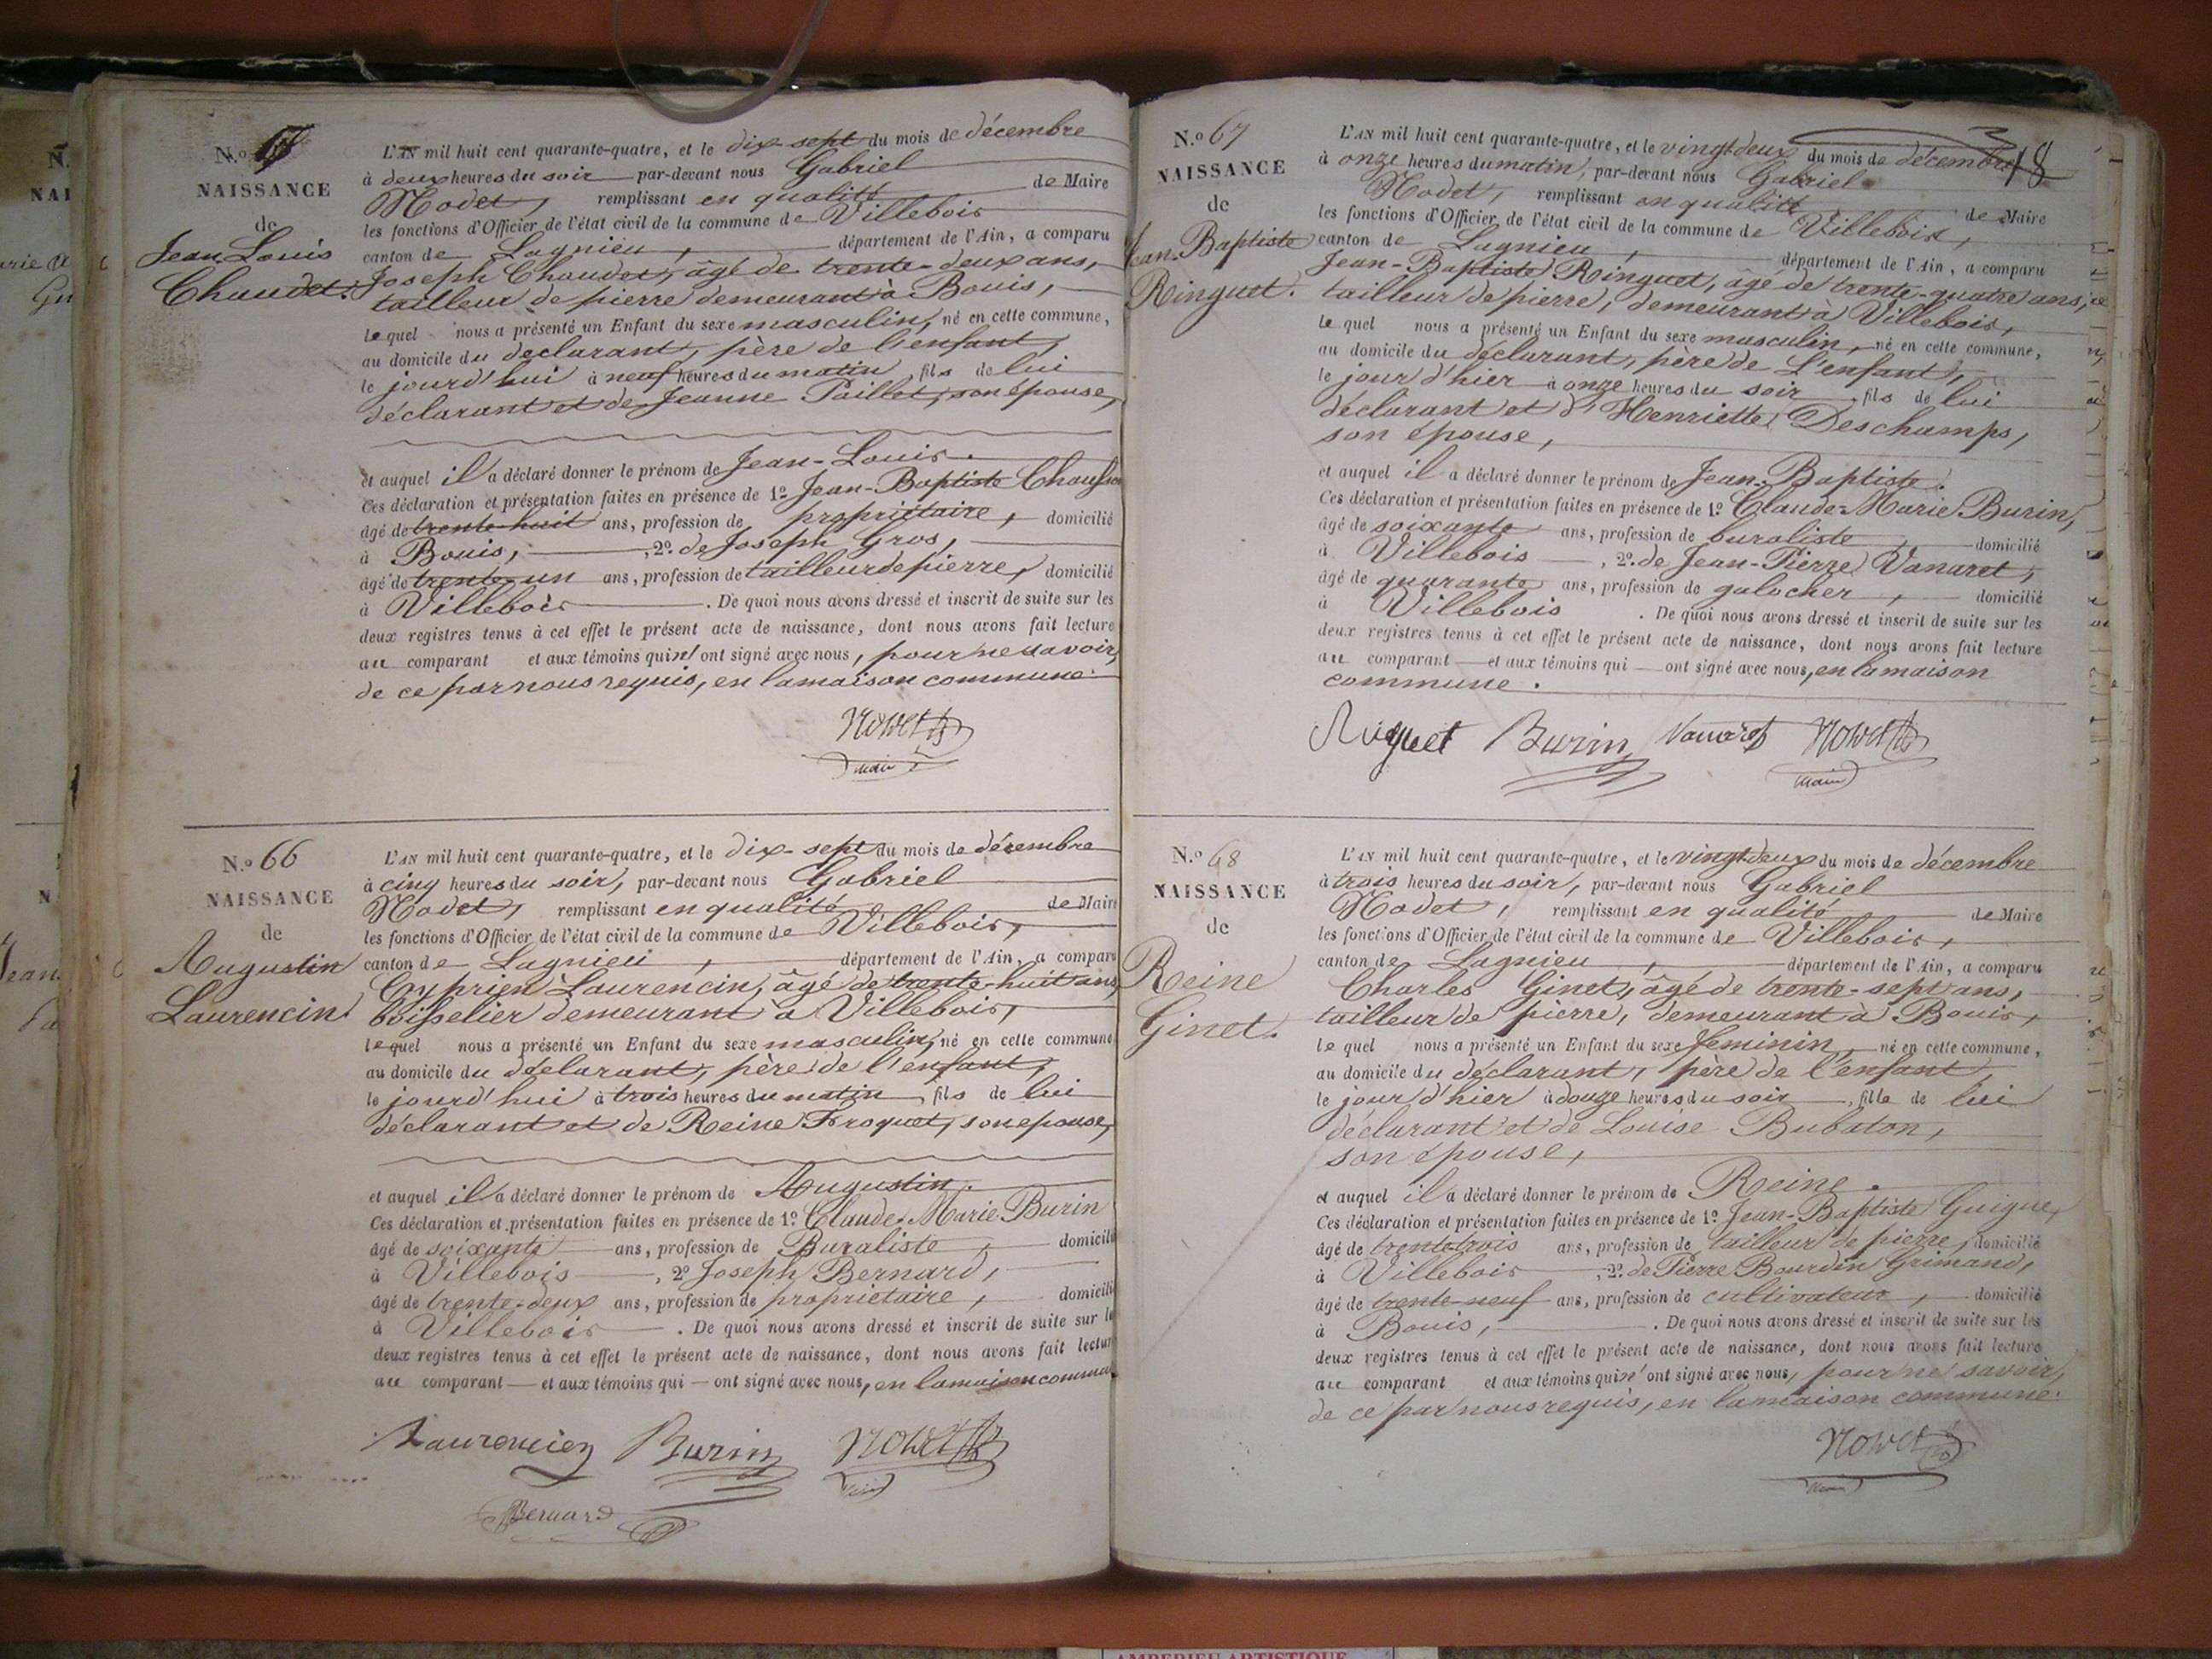 N.o
NAISSANCE
de
Jean Louis
Chaudet.
L'AN mil huit cent quarante-quatre, et le dix-sept du mois de décembre
à deux heures du soir par-devant nous Gabriel
Nodet, remplissant en qualité de Maire
les fonctions d'Officier de l'état civil de la commune de Villebois
canton de Lagnieu, département de l'Ain, a comparu
Joseph Chaudet, âgé de trente-deux ans,
tailleur de pierre demeurant à Bouis,
lequel nous a présenté un Enfant du sexe masculin, né en cette commune,
au domicile du déclarant, père de l'enfant,
le jourd'hui à neuf heures du matin, fils de lui
déclarant et de Jeanne Paillet, son épouse,
et auquel il a déclaré donner le prénom de Jean-Louis.
Ces déclaration et présentation faites en présence de 1º Jean-Baptiste
âgé de trente-huit ans, profession de propriétaire, domicilié
à Bouis, , 2º de Joseph Gros,
âgé de trente-un ans, profession de tailleur de pierre, domicilié
à Villebois . De quoi nous avons dressé et inscrit de suite sur les
deux registres tenus à cet effet le présent acte de naissance, dont nous avons fait lecture
au comparant et aux témoins qui n'ont signé avec nous, pour ne savoir,
de ce par nous requis, en la maison commune.
Nodet
Maire
N.o 66
NAISSANCE
de
Augustin
Laurencin
L'AN mil huit cent quarante-quatre, et le dix-sept du mois de décembre
à cinq heures du soir, par-devant nous Gabriel
Nodet, remplissant en qualité de Maire
les fonctions d'Officier de l'état civil de la commune de Villebois,
canton de Lagnieu, département de l'Ain, a comparu
Cyprien Laurencin, âgé de trente-huit ans,
boisselier demeurant à Villebois,
lequel nous a présenté un Enfant du sexe masculin, né en cette commune
au domicile du déclarant, père de l'enfant,
le jourd'hui à trois heures du matin, fils de lui
déclarant et de Reine Froquet, son epouse,
et auquel il a déclaré donner le prénom de Augustin.
Ces déclaration et présentation faites en présence de 1º Claude-Marie Burin
âgé de soixante ans, profession de Buraliste, domicilié
à Villebois , 2º Joseph Bernard,
âgé de trente-deux ans, profession de propriétaire, domicilié
à Villebois . De quoi nous avons dressé et inscrit de suite sur les
deux registres tenus à cet effet le présent acte de naissance, dont nous avons fait lecture
au comparant et aux témoins qui ont signé avec nous, en la maison commune
Laurencien Burin Nodet
Maire
Bernard
18
N.o 67
NAISSANCE
de
Jean-Baptiste
Ringuet.
L'AN mil huit cent quarante-quatre, et le vingt-deux du mois de décembre
à onze heures du matin, par-devant nous Gabriel
Nodet, remplissant en qualité de Maire
les fonctions d'Officier de l'état civil de la commune de Villebois,
canton de Lagnieu, département de l'Ain, a comparu
Jean-Baptiste Ringuet, âgé de trente-quatre ans,
tailleur de pierre, demeurant à Villebois,
lequel nous a présenté un Enfant du sexe masculin, né en cette commune,
au domicile du déclarant, père de L'enfant,
le jour d'hier à onze heures du soir, fils de lui
déclarant et d'Henriette Deschamps,
son épouse,
et auquel il a déclaré donner le prénom de Jean-Baptiste.
Ces déclaration et présentation faites en présence de 1º Claude-Marie Burin,
âgé de soixante ans, profession de buraliste, domicilié
à Villebois , 2º de Jean-Pierre Vanaret,
âgé de quarante ans, profession de galocher, domicilié
à Villebois . De quoi nous avons dressé et inscrit de suite sur les
deux registres tenus à cet effet le présent acte de naissance, dont nous avons fait lecture
au comparant et aux témoins qui ont signé avec nous, en la maison
commune.
Riguet Burin Vanaret Nodet
Maire
N.o 68
NAISSANCE
de
Reine
Ginet.
L'AN mil huit cent quarante-quatre, et le vingt-deux du mois de décembre
à trois heures du soir, par-devant nous Gabriel
Nodet, remplissant en qualité de Maire
les fonctions d'Officier de l'état civil de la commune de Villebois,
canton de Lagnieu, département de l'Ain, a comparu
Charles Ginet, âgé de trente-sept ans,
tailleur de pierre, demeurant à Bouis,
lequel nous a présenté un Enfant du sexe féminin, né en cette commune,
au domicile du déclarant, père de l'enfant,
le jour d'hier à douze heures du soir, fille de lui
déclarant et de Louise Bubaton,
son épouse,
et auquel il a déclaré donner le prénom de Reine.
Ces déclaration et présentation faites en présence de 1º Jean-Baptiste Guigue,
âgé de trente-trois ans, profession de tailleur de pierre, domicilié
à Villebois , 2º de Pierre Bourdin Grimand,
âgé de trente-neuf ans, profession de cultivateur, domicilié
à Bouis, . De quoi nous avons dressé et inscrit de suite sur les
deux registres tenus à cet effet le présent acte de naissance, dont nous avons fait lecture
au comparant et aux témoins qui n'ont signé avec nous, pour ne savoir,
de ce par nous requis, en la maison commune.
Nodet
Maire
AMBERIEU ARTISTIQUE